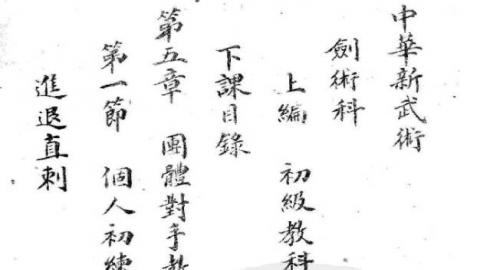 中華新武術
劍術科
上編 初級教科
下課目錄
第五章 團體對手教
第一節 個人初練
進退直刺